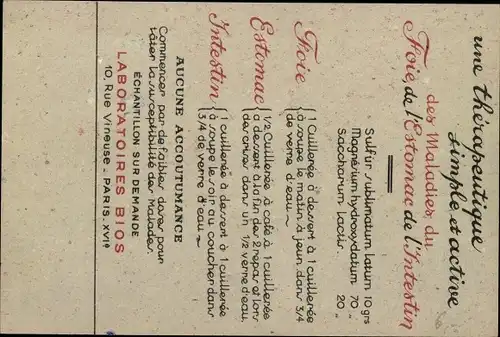 une thérapeutique
simple et active
des Maladies du
Foie, de l'Estomac de l'Intestin
Sulfur sublimatum lotum 10 grs
Magnésium hydroxydatum 70 "
Saccharum lactis. 20 "
Foie { 1 Cuillerée à dessert à 1 cuillerée
à soupe le matin à jeun dans 3/4
de verre d'eau ~
Estomac { 1/2 Cuillerée à café à 1 cuillerée
à dessert à la fin des 2 repas et lors
des crises dans un 1/2 verre d'eau.
Intestin { 1 cuillerée à dessert à 1 cuillerée
à soupe le soir au coucher dans
3/4 de verre d'eau ~
AUCUNE ACCOUTUMANCE
Commencer par de faibles doses pour
tâter la susceptibilité des Malades.
ÉCHANTILLON SUR DEMANDE
LABORATOIRES BIOS
10, Rue Vineuse - PARIS-XVIe